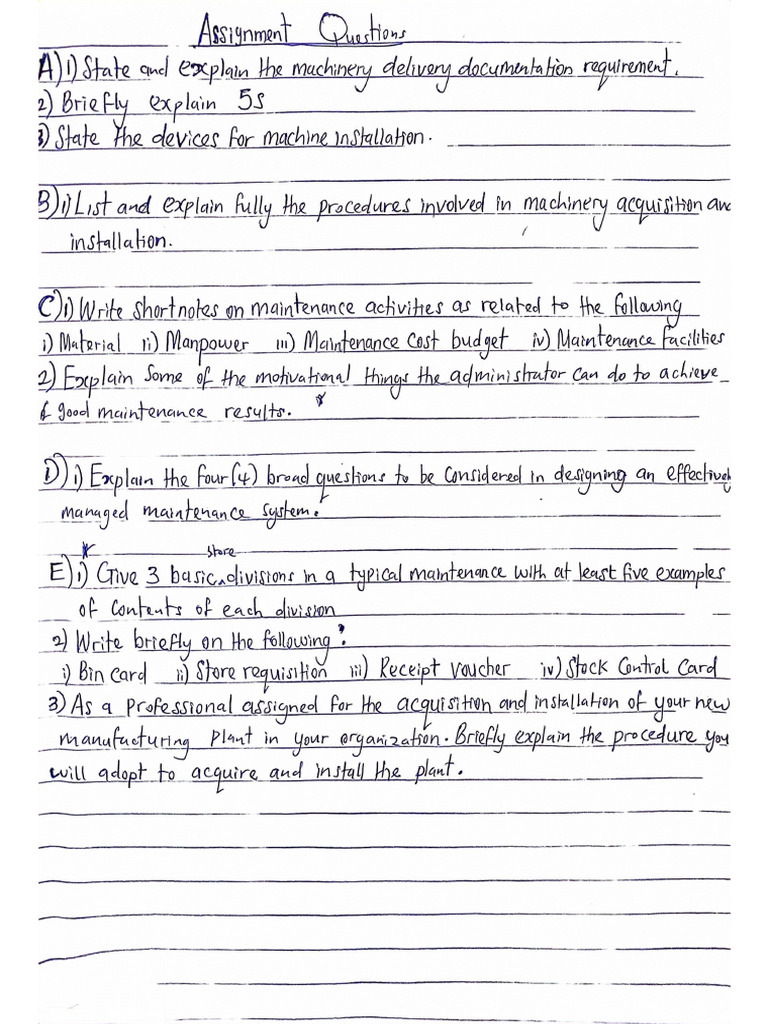 Assignment Questions
A) 1) State and explain the machinery delivery documentation requirement.
2) Briefly explain 5s
3) State the devices for machine installation.
B) 1) List and explain fully the procedures involved in machinery acquisition and
installation.
C) 1) Write short notes on maintenance activities as related to the following
i) Material ii) Manpower iii) Maintenance Cost budget iv) Maintenance Facilities
2) Explain some of the motivational things the administrator can do to achieve
good maintenance results.
D) 1) Explain the four (4) broad questions to be considered in designing an effectively
managed maintenance system.
store
E) 1) Give 3 basic divisions in a typical maintenance with at least five examples
of contents of each division
2) Write briefly on the following:
i) Bin card ii) Store requisition iii) Receipt Voucher iv) Stock Control Card
3) As a professional assigned for the acquisition and installation of your new
manufacturing plant in your organization. Briefly explain the procedure you
will adopt to acquire and install the plant.